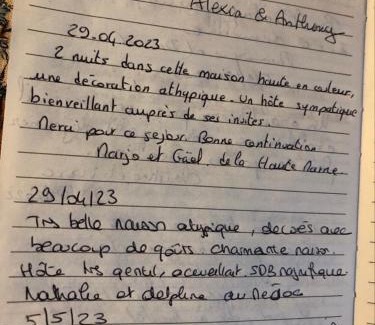 Alexia & Anthony
29.04.2023
2 nuits dans cette maison haute en couleur,
une décoration athypique. Un hôte sympatique
bienveillant auprès de ses invites.
Merci pour ce sejour. Bonne continuation
Marjo et Gaël. de la Haute Marne.
29/04/23
Très belle maison atypique, decorés avec
beaucoup de goûts. charmante maison.
Hôte très gentil, acceuillant. SDB magnifique
Nathalie et delphine du Médoc
5/5/23